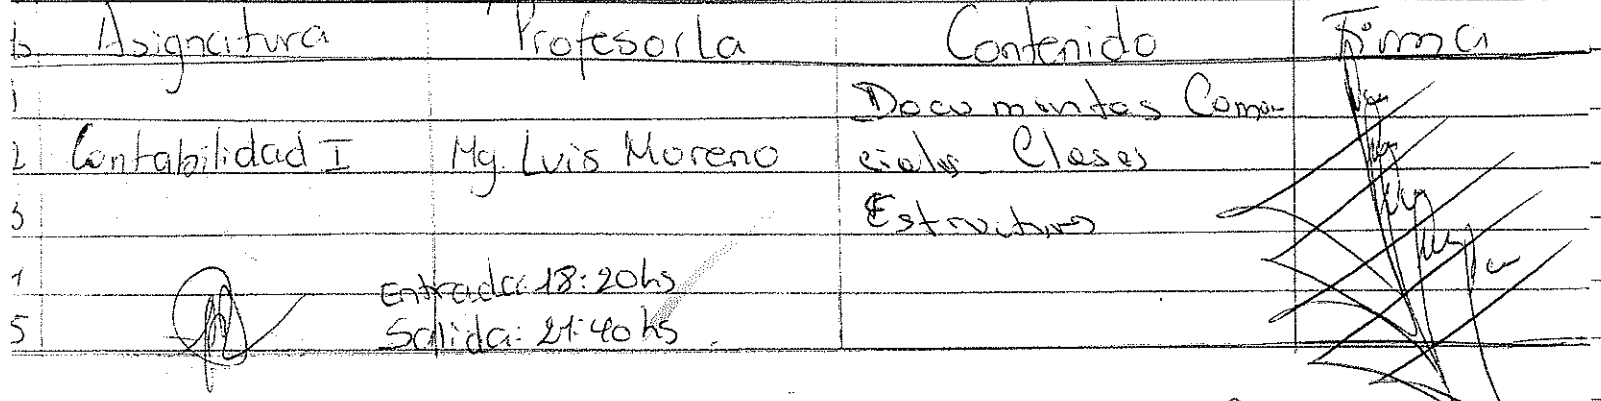 Asignatura Profesor/a Contenido Firma
1 Documentos Comer
2 Contabilidad I Mg. Luis Moreno ciales Clases
3 Estructuras
Entrada: 18:20hs
5 Salida: 21:40 hs